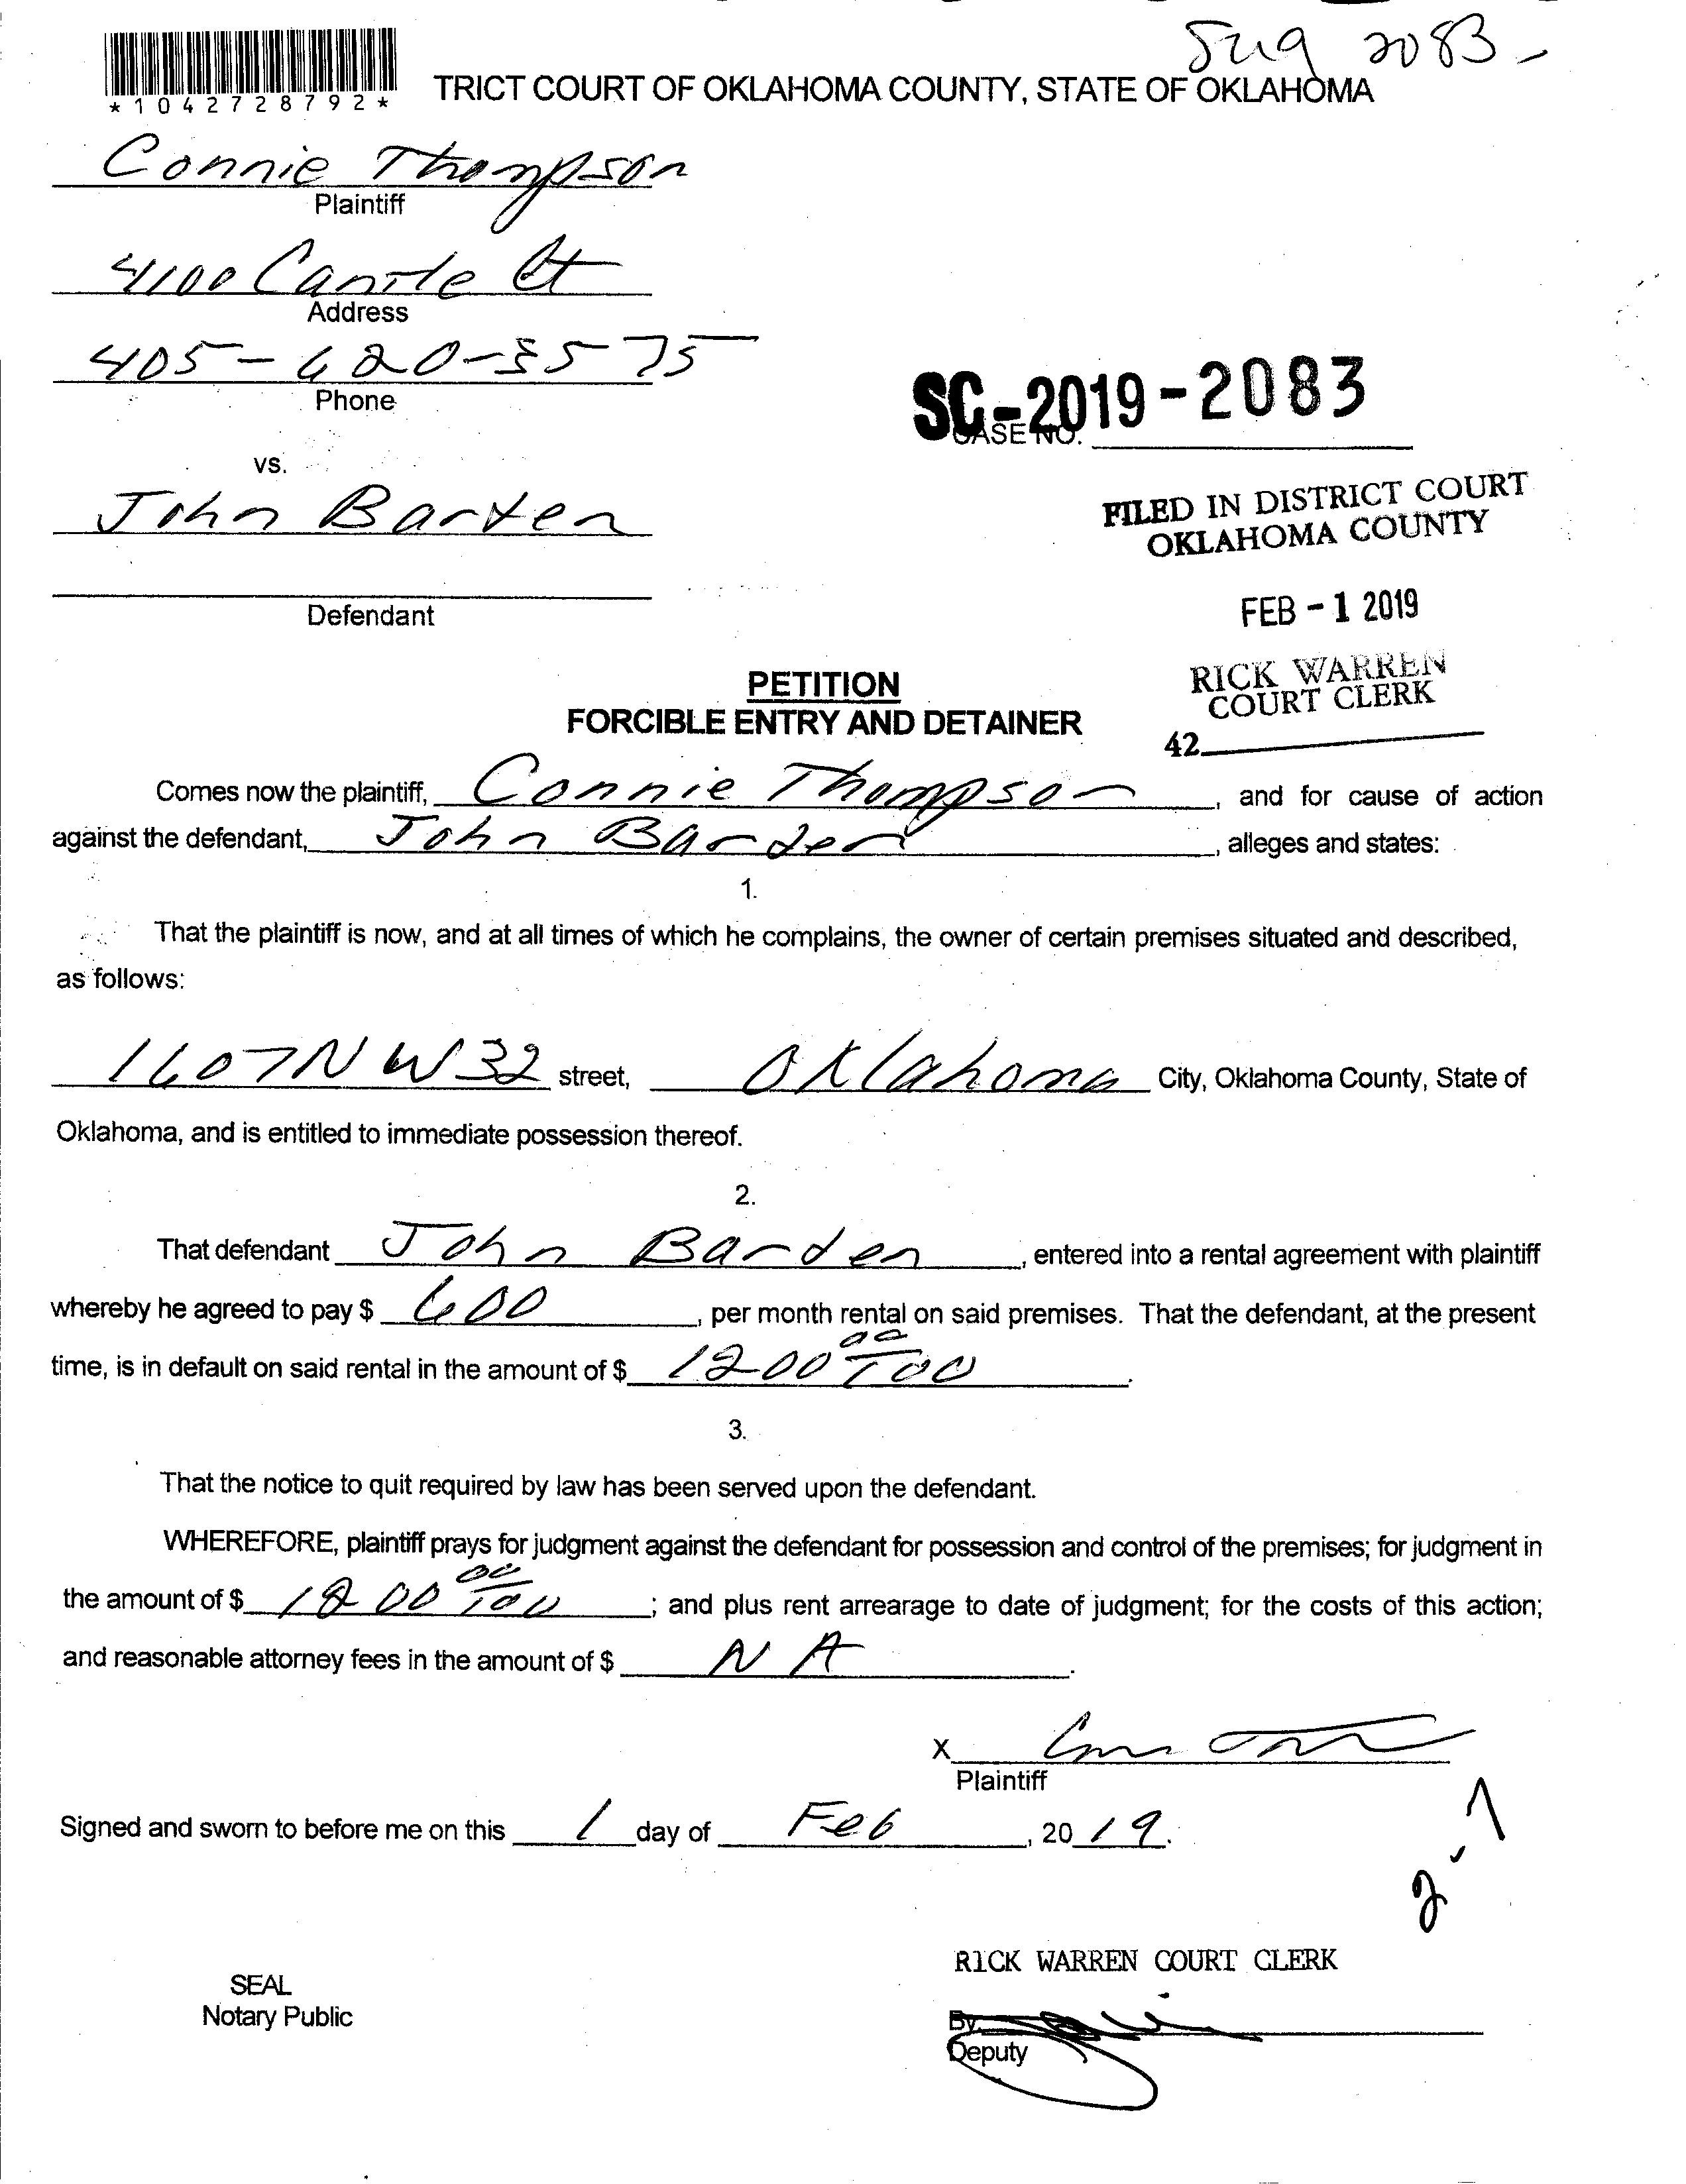 *1042728792*
2083-
TRICT COURT OF OKLAHOMA COUNTY, STATE OF OKLAHOMA
Connie Thompson
Plaintiff
4100 Ct
Address
405-620-3575
Phone
SC-2019-2083
CASE NO.
vs.
John Barten
FILED IN DISTRICT COURT
OKLAHOMA COUNTY
Defendant
FEB -1 2019
RICK WARREN
COURT CLERK
42
PETITION
FORCIBLE ENTRY AND DETAINER
Comes now the plaintiff, Connie Thompson, and for cause of action
against the defendant, John Barden, alleges and states:
1.
That the plaintiff is now, and at all times of which he complains, the owner of certain premises situated and described,
as follows:
1607 NW 32 street, Oklahoma City, Oklahoma County, State of
Oklahoma, and is entitled to immediate possession thereof.
2.
That defendant John Barden, entered into a rental agreement with plaintiff
whereby he agreed to pay $ 600, per month rental on said premises. That the defendant, at the present
time, is in default on said rental in the amount of $ 1200 00/100.
3.
That the notice to quit required by law has been served upon the defendant.
WHEREFORE, plaintiff prays for judgment against the defendant for possession and control of the premises; for judgment in
the amount of $ 1200 00/100; and plus rent arrearage to date of judgment; for the costs of this action;
and reasonable attorney fees in the amount of $ NA.
X
Plaintiff
Signed and sworn to before me on this 1 day of Feb, 2019.
2-1
RICK WARREN COURT CLERK
SEAL
Notary Public
By
Deputy